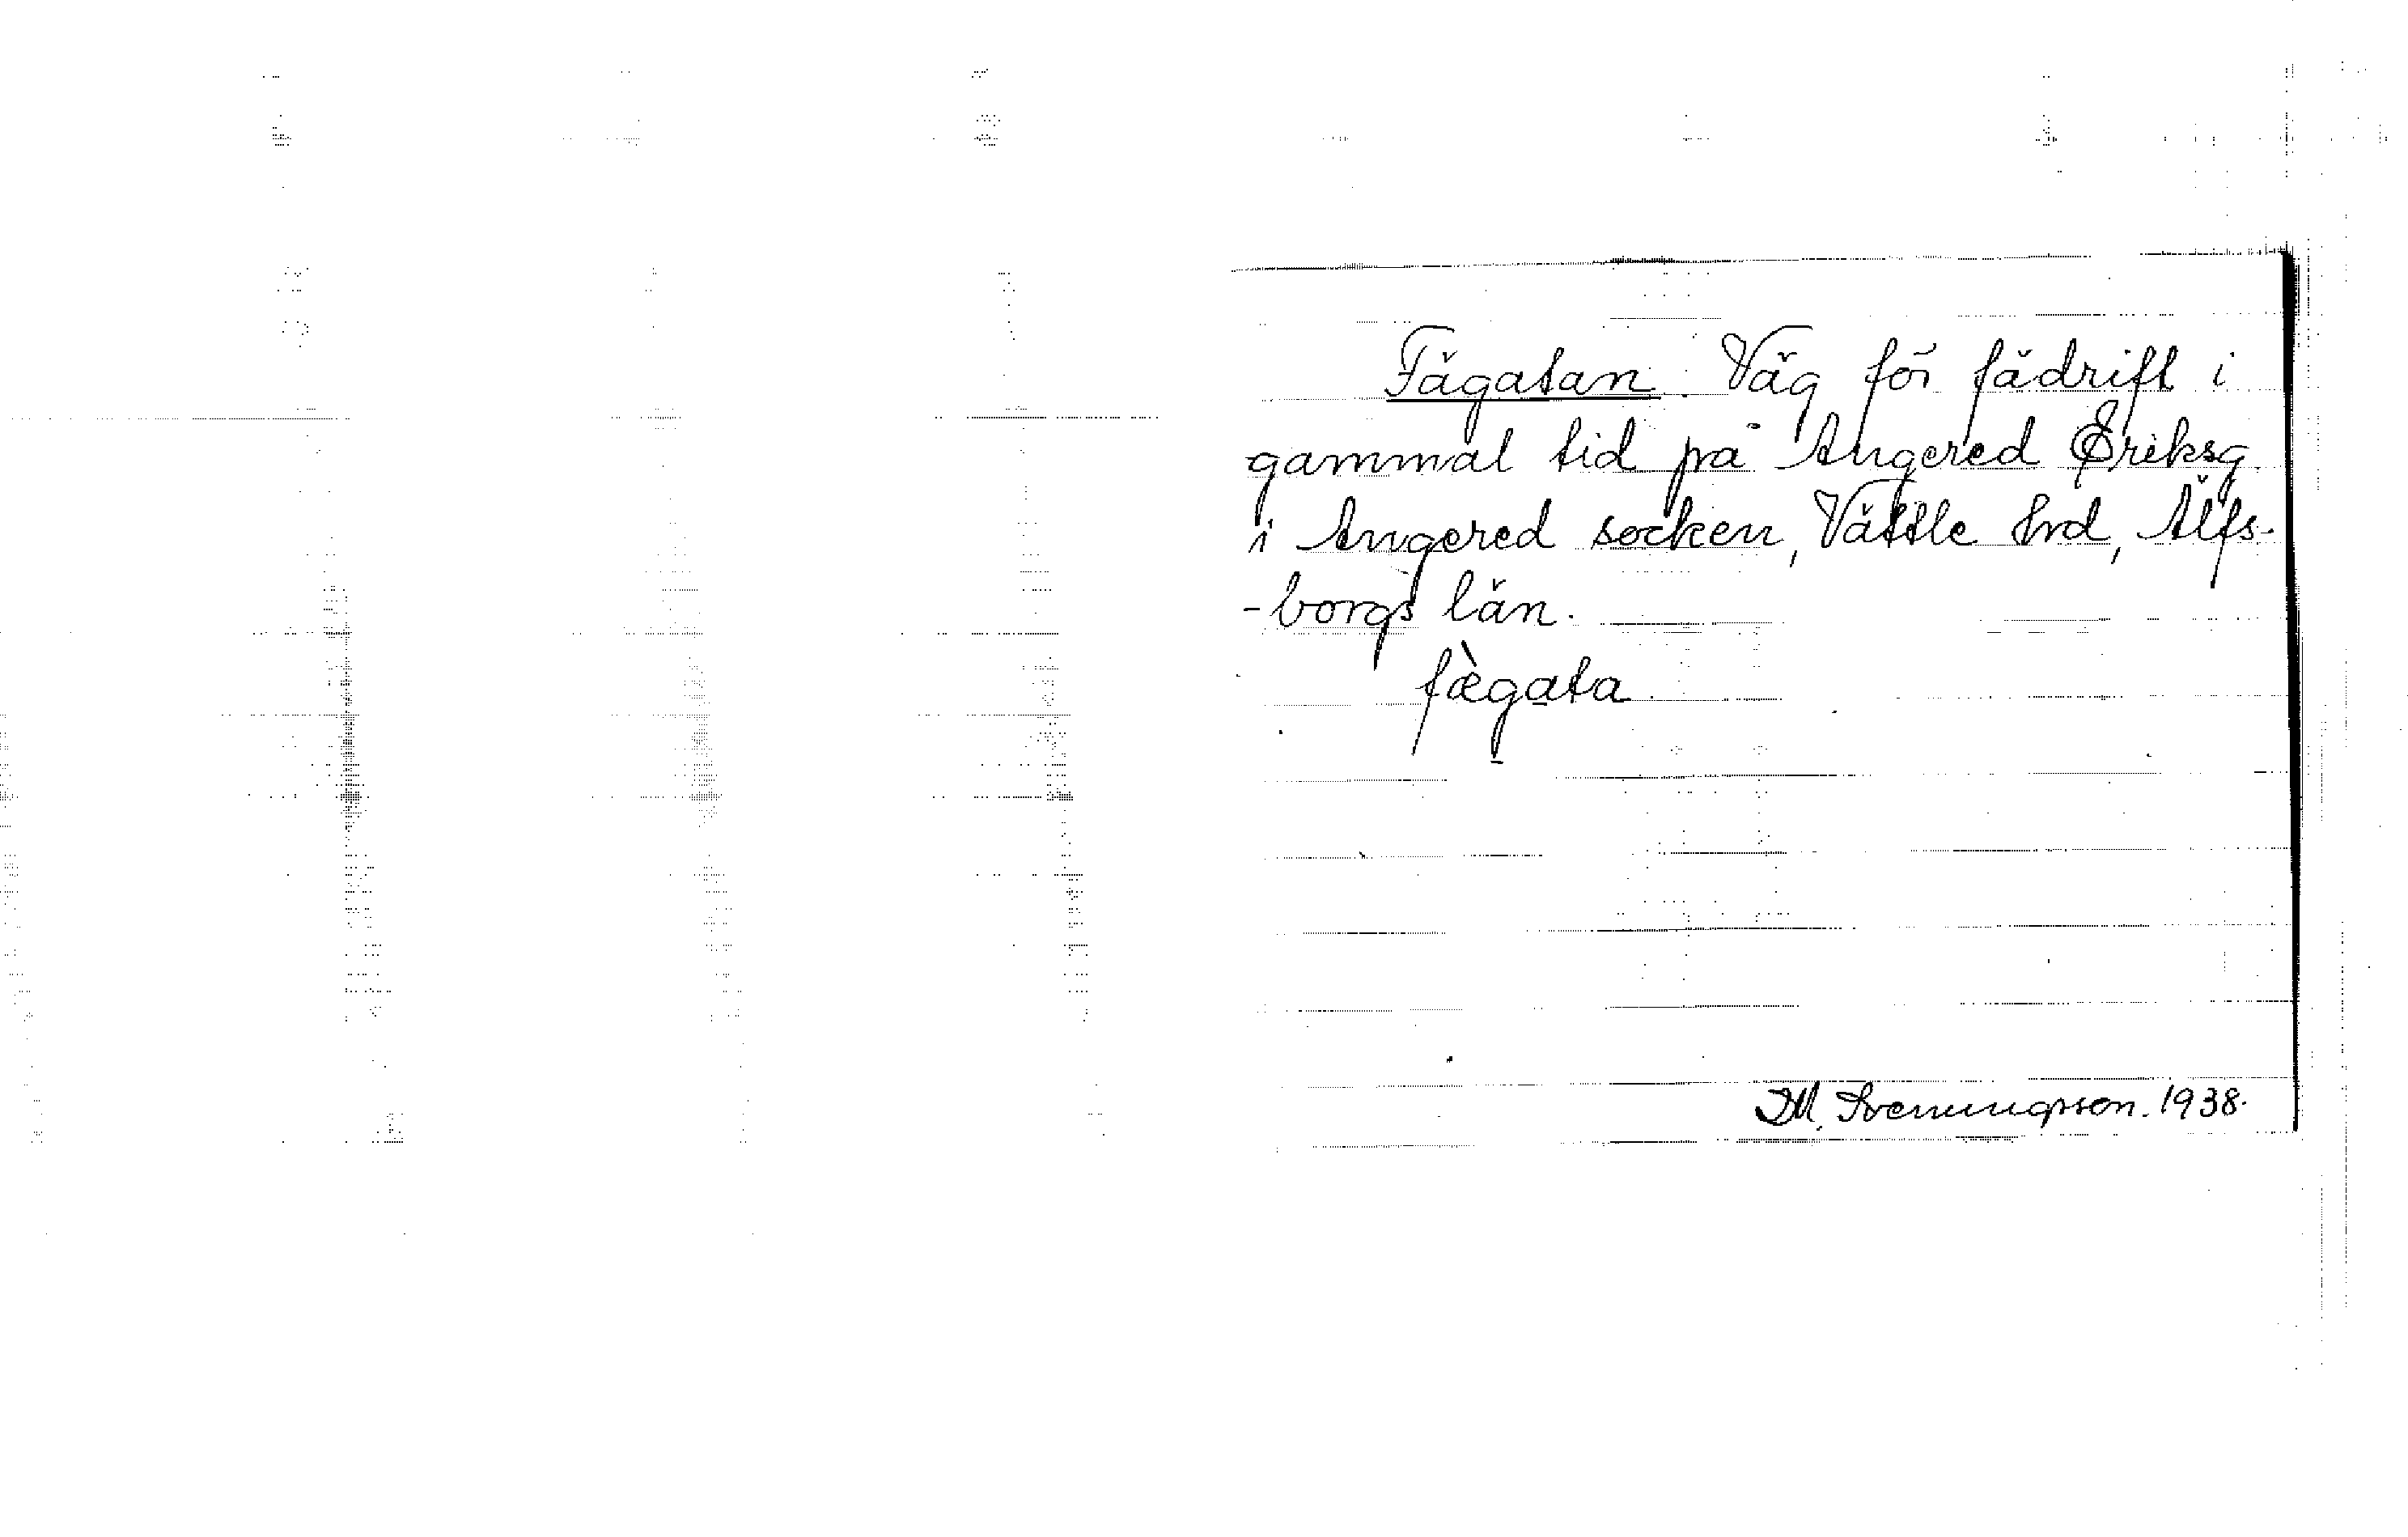 Fägatan. Väg för fädrift i
gammal tid på Angered Eriksg.
i Angered socken, Vättle hrd, Älfs-
-borgs län.
fæ̀gata
I M. Svenungsson. 1938.